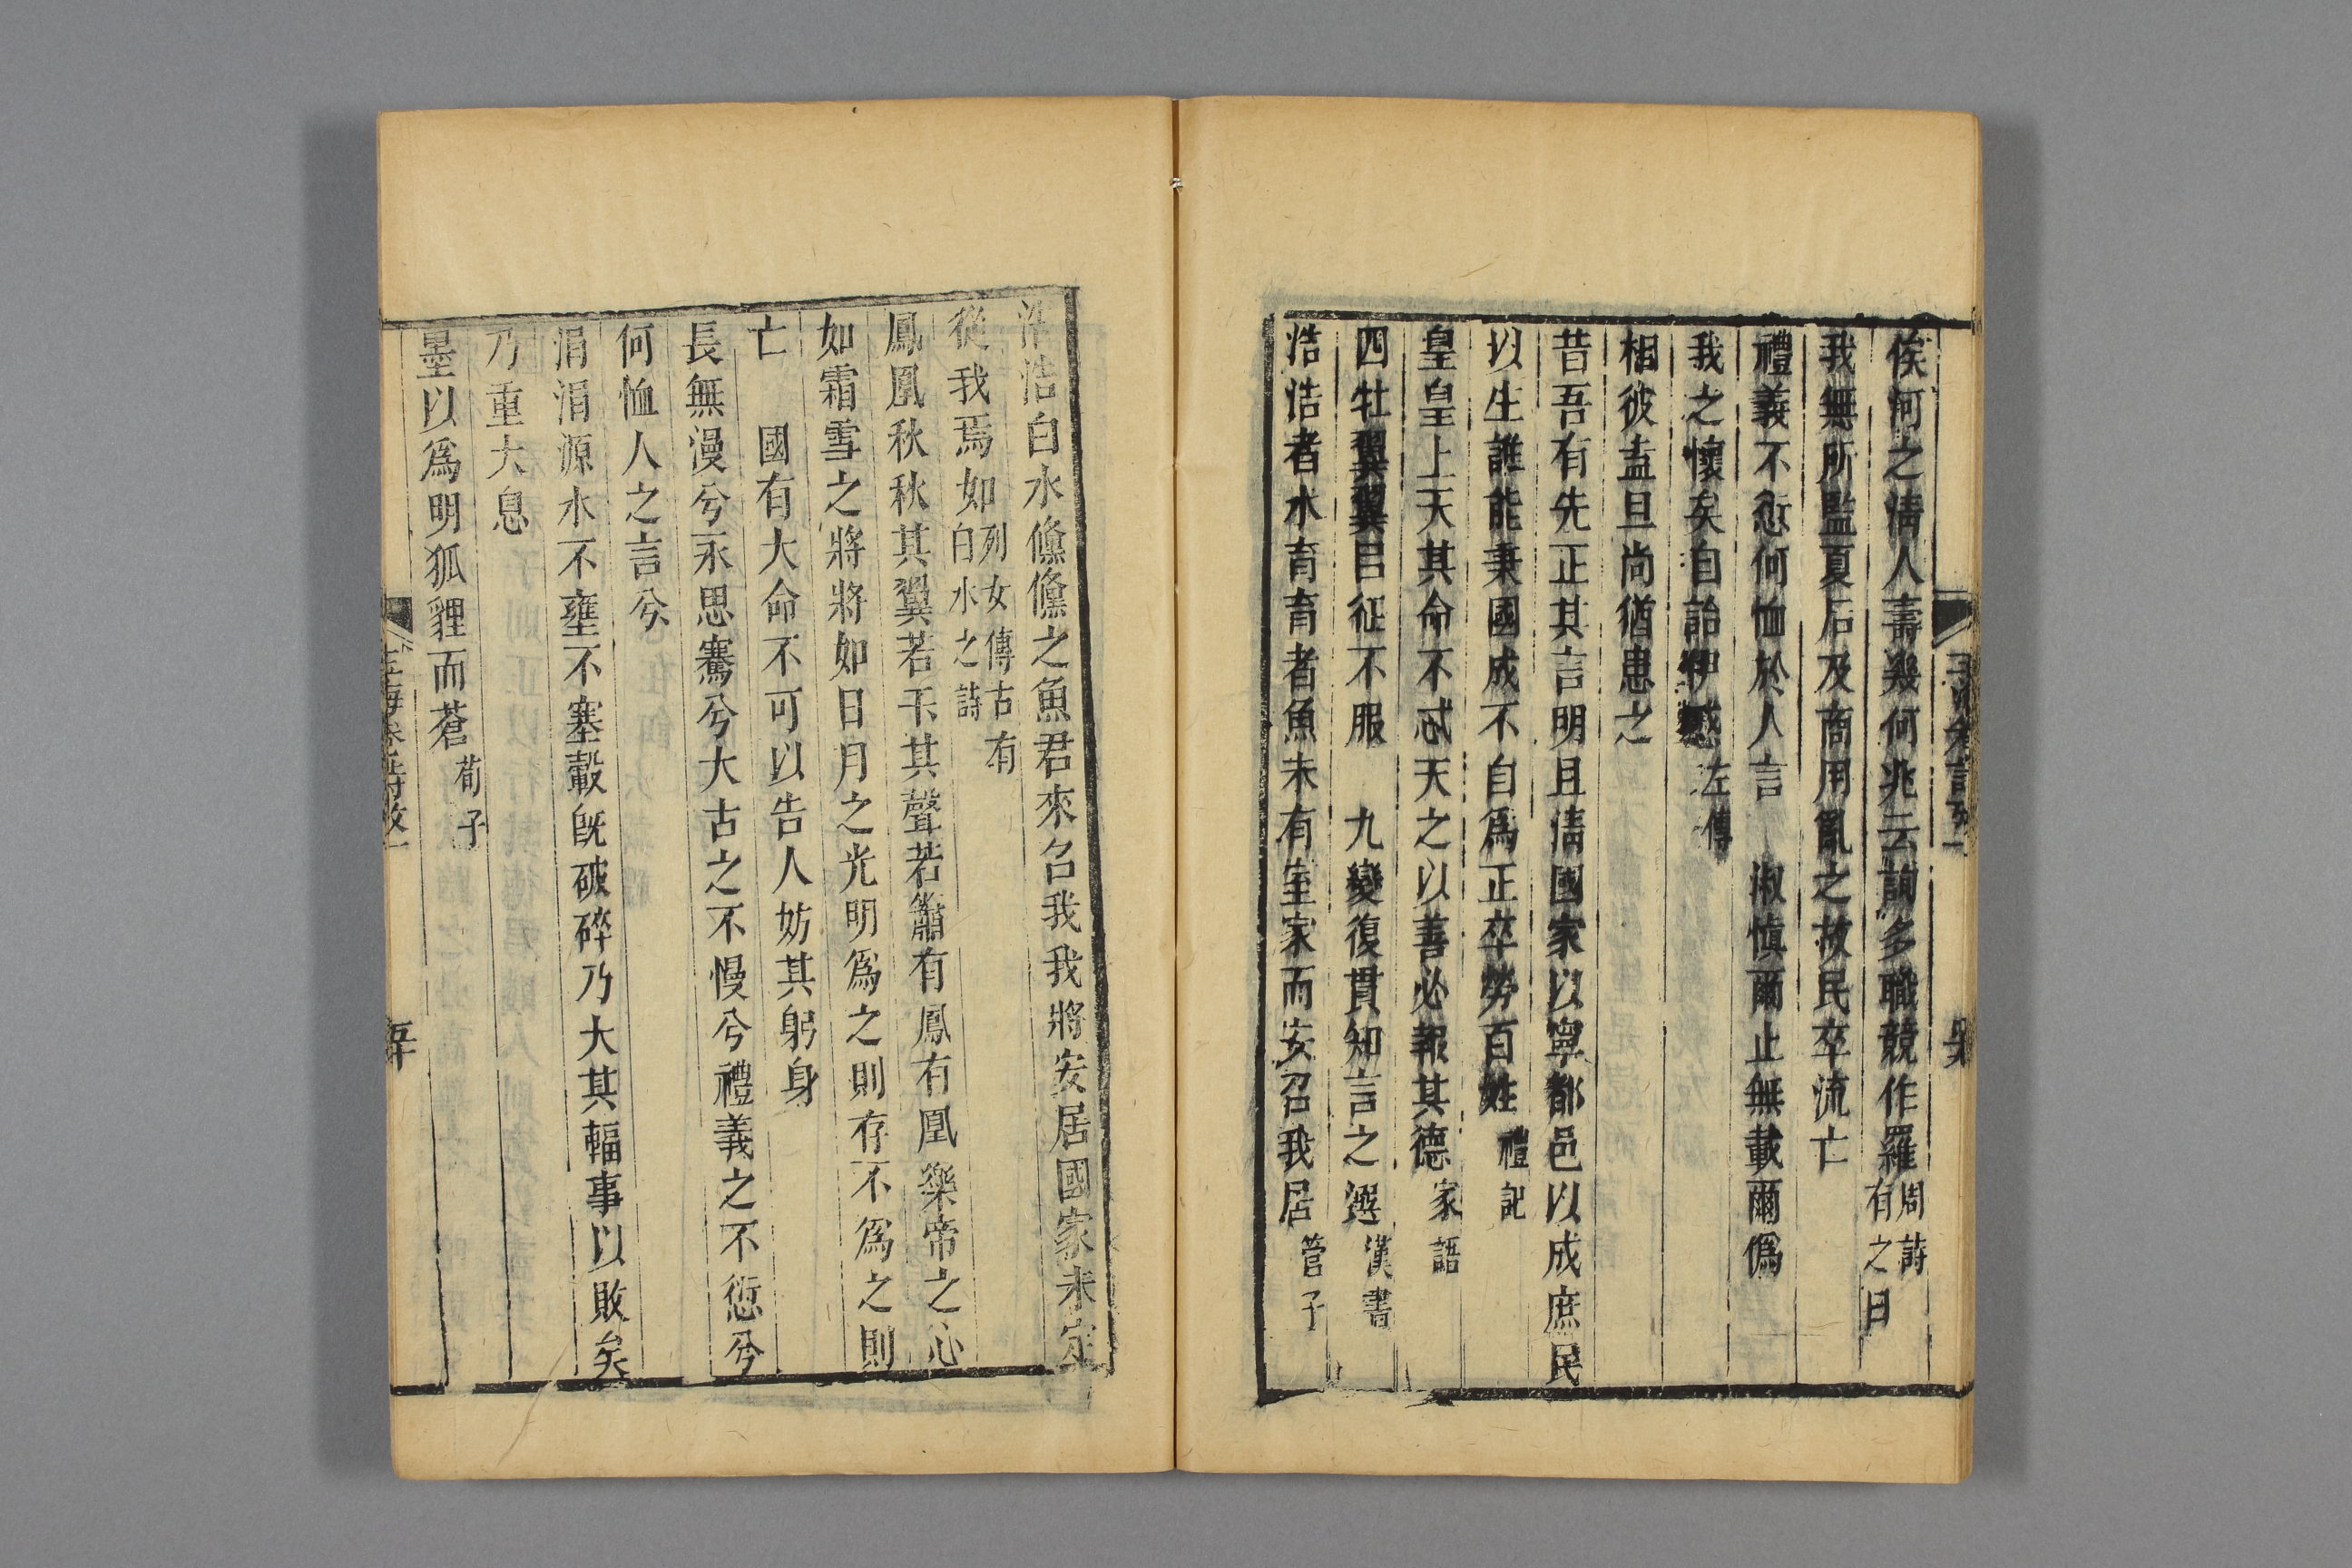 俟河之淸人壽幾何兆云詢多職競作羅周詩有之曰
我無所監夏后及商用亂之故民卒流亡
禮義不愆何恤於人言　淑愼爾止無載爾僞
我之懷矣自詒伊慼左傳
相彼盍旦尚猶患之
昔吾有先正其言明且淸國家以寧都邑以成庶民
以生誰能秉國成不自爲正卒勞百姓禮記
皇皇上天其命不忒天之以善必報其德家語
四牡翼翼㠯征不服　九變復貫知言之選漢書
浩浩者水育育者魚未有室家而安召我居管子
浩浩白水儵儵之魚君來召我我將安居國家未定
從我焉如列女傳古有白水之詩
鳳凰秋秋其翼若干其聲若簫有鳳有凰樂帝之心
如霜雪之將將如日月之光明爲之則存不爲之則
亡　國有大命不可以告人妨其躬身
長無漫兮永思騫兮大古之不慢兮禮義之不愆兮
何恤人之言兮
涓涓源水不壅不塞轂旣破碎乃大其輻事以敗矣
乃重大息
墨以爲明狐貍而蒼荀子